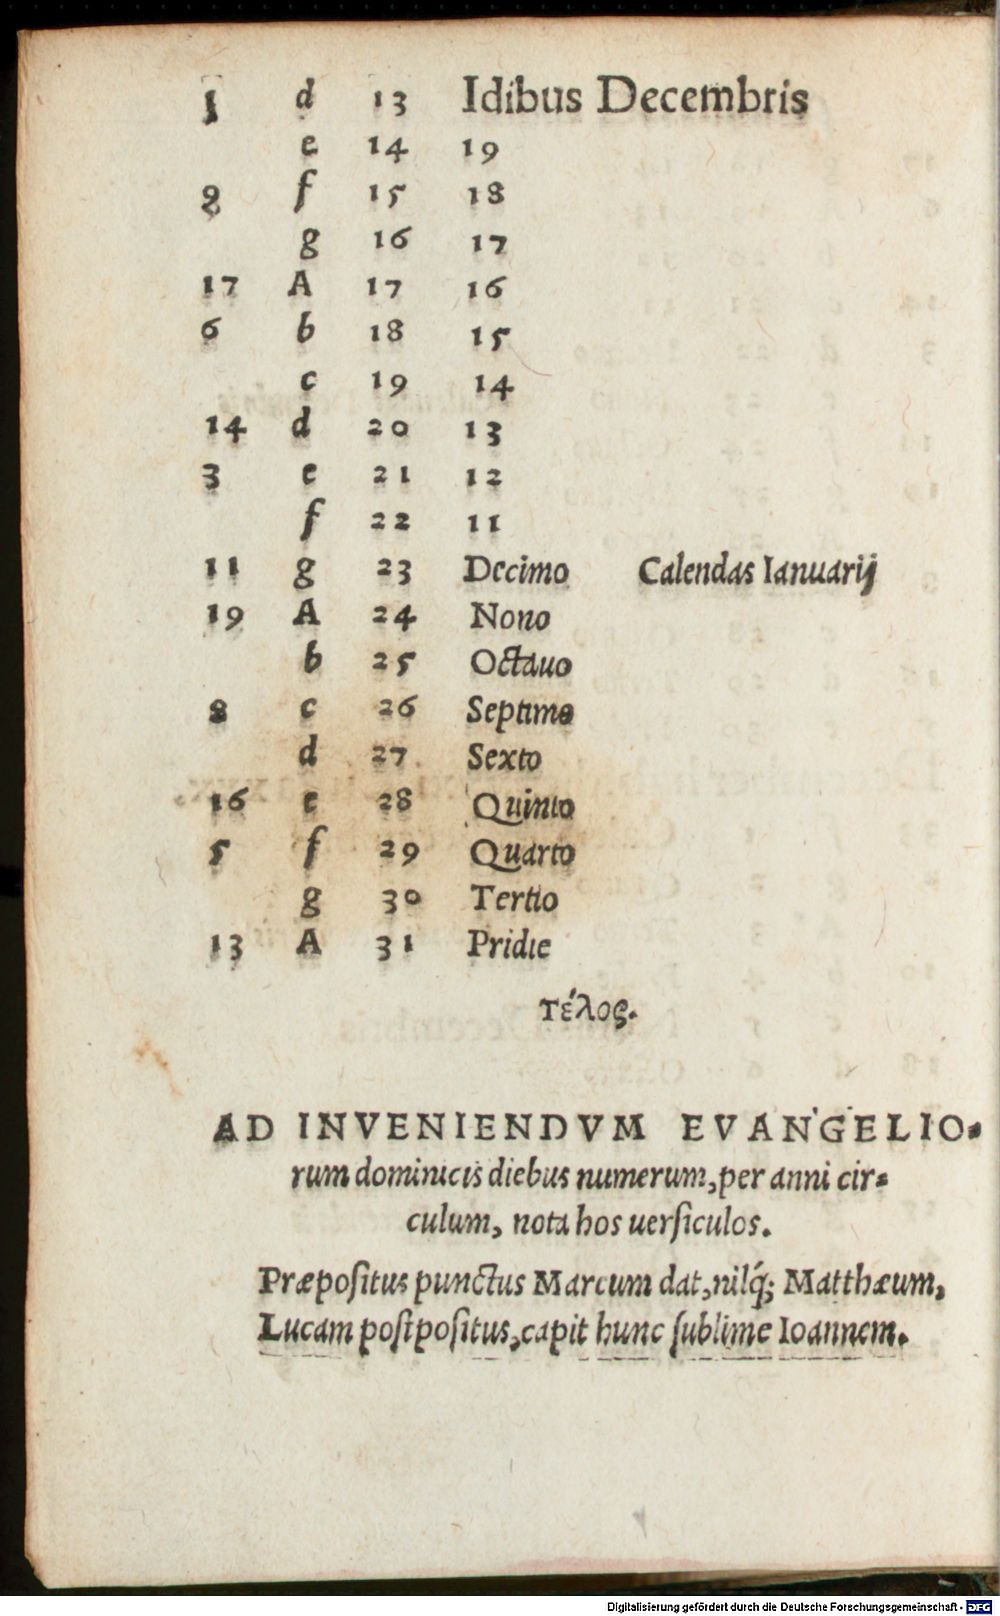 1 d 13 Idibus Decembris
e 14 19
9 f 15 18
g 16 17
17 A 17 16
6 b 18 15
c 19 14
14 d 20 13
3 e 21 12
f 22 11
11 g 23 Decimo Calendas Ianuarij
19 A 24 Nono
b 25 Octauo
8 c 26 Septimo
d 27 Sexto
16 e 28 Quinto
5 f 29 Quarto
g 30 Tertio
13 A 31 Pridie
τέλος.
AD INVENIENDVM EVANGELIO-
rum dominicis diebus numerum, per anni cir-
culum, nota hos uerſiculos.
Præpoſitus punctus Marcum dat, nilq́; Matthæum,
Lucam poſtpoſitus, capit hunc ſublime Ioannem.
Digitalisierung gefördert durch die Deutsche Forschungsgemeinschaft - DFG